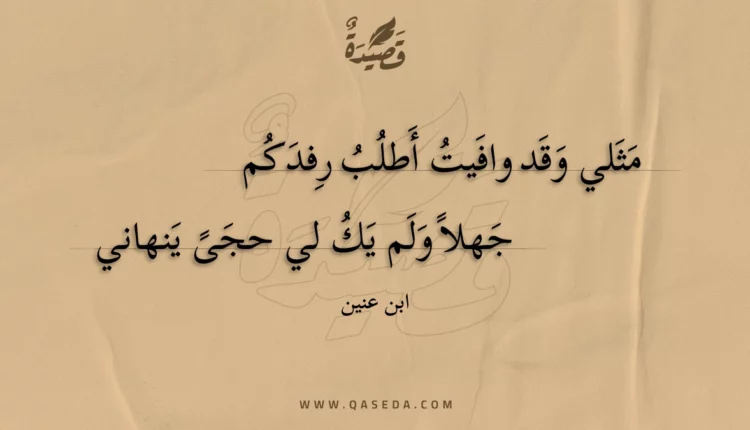 قَصِيدَةٌ
مَثَلي وَقَد وافَيتُ أَطلُبُ رِفدَكُم
جَهلاً وَلَم يَكُ لي حجَىً يَنهاني
ابن عنين
WWW.QASEDA.COM